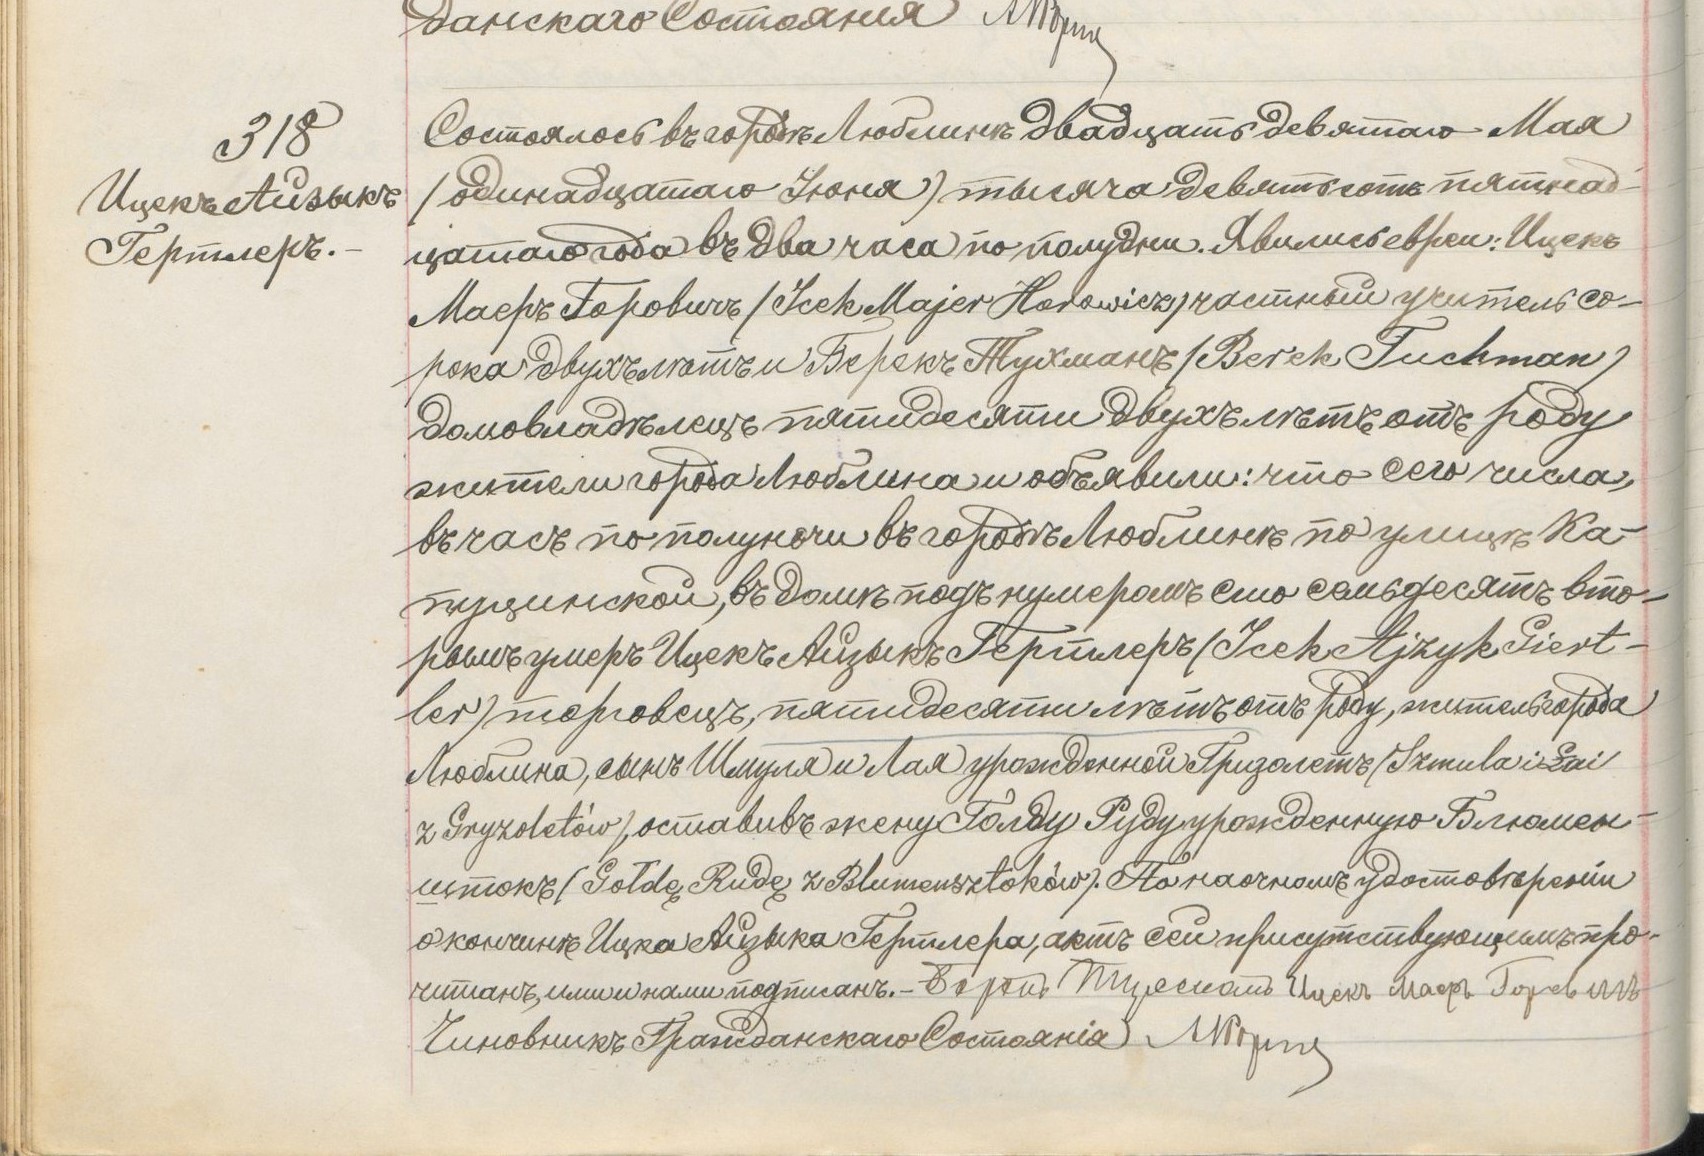 данскаго Состоянія
318
Ицекъ Айзыкъ
Гертлеръ.-
Состоялось въ городѣ Люблинѣ двадцать девятаго Мая
/одинадцатаго Іюня) тысяча девятьсотъ пятнад-
цатаго года въ два часа по полудни. Явились евреи: Ицекъ
Маеръ Горовичъ /Icek Majer Horowicz/ частный учитель со-
рока двухъ лѣтъ и Берекъ Тухманъ /Berek Tuchman/
домовладѣлецъ пятидесяти двухъ лѣтъ отъ роду
жители города Люблина и объявили: что сего числа,
въ часъ по полуночи въ городѣ Люблинѣ по улицѣ Ка-
пуцинской, въ домѣ подъ нумеромъ сто семьдесятъ вто-
рымъ умеръ Ицекъ Айзыкъ Гертлеръ (Icek Ajzyk Giert-
ler) торговецъ, пятидесяти лѣтъ отъ роду, житель города
Люблина, сынъ Шмуля и Лая урожденной Гризолетъ /Szmula i Łai
z Gryzoletów/, оставивъ жену Голду Руду урожденную Блюмен-
штокъ (Gołdę Rudę z Blumensztoków). По наочномъ удостовѣреніи
о кончинѣ Ицка Айзыка Гертлера, актъ сей присутствующимъ про-
читанъ, ими и нами подписанъ.- Ицекъ Маеръ Горовичъ
Чиновникъ Гражданскаго Состоянія